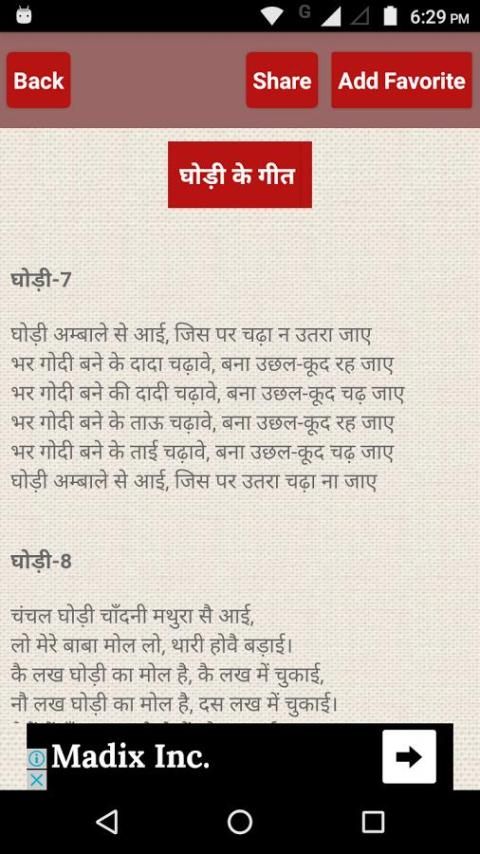 G
6:29 PM
Back
Share
Add Favorite
घोड़ी के गीत
घोड़ी-7
घोड़ी अम्बाले से आई, जिस पर चढ़ा न उतरा जाए
भर गोदी बने के दादा चढ़ावे, बना उछल-कूद रह जाए
भर गोदी बने की दादी चढ़ावे, बना उछल-कूद चढ़ जाए
भर गोदी बने के ताऊ चढ़ावे, बना उछल-कूद रह जाए
भर गोदी बने के ताई चढ़ावे, बना उछल-कूद चढ़ जाए
घोड़ी अम्बाले से आई, जिस पर उतरा चढ़ा ना जाए
घोड़ी-8
चंचल घोड़ी चाँदनी मथुरा सै आई,
लो मेरे बाबा मोल लो, थारी होवै बड़ाई।
कै लख घोड़ी का मोल है, कै लख में चुकाई,
नौ लख घोड़ी का मोल है, दस लख में चुकाई।
Madix Inc.